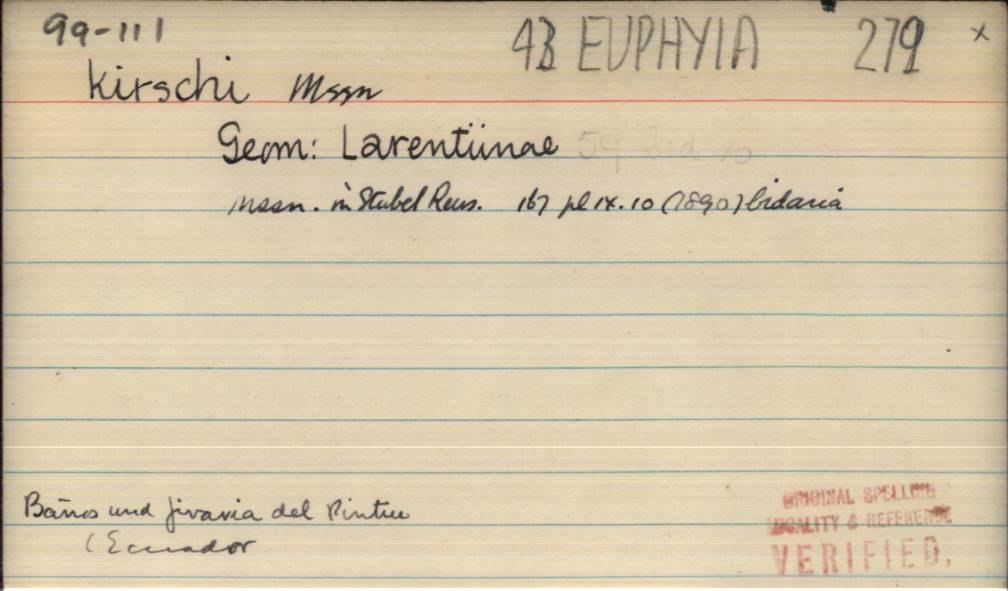 99-111 43 EUPHYIA 279 x
kirschi Mssn
Geom: Larentiinae
Mssn. in Stubel Reis. 167 pl ix. 10 (1890) Cidaria
Baños und Jivaria del Pintuc
(Ecuador
ORIGINAL SPELLING
LOCALITY & REFERENCE
VERIFIED.